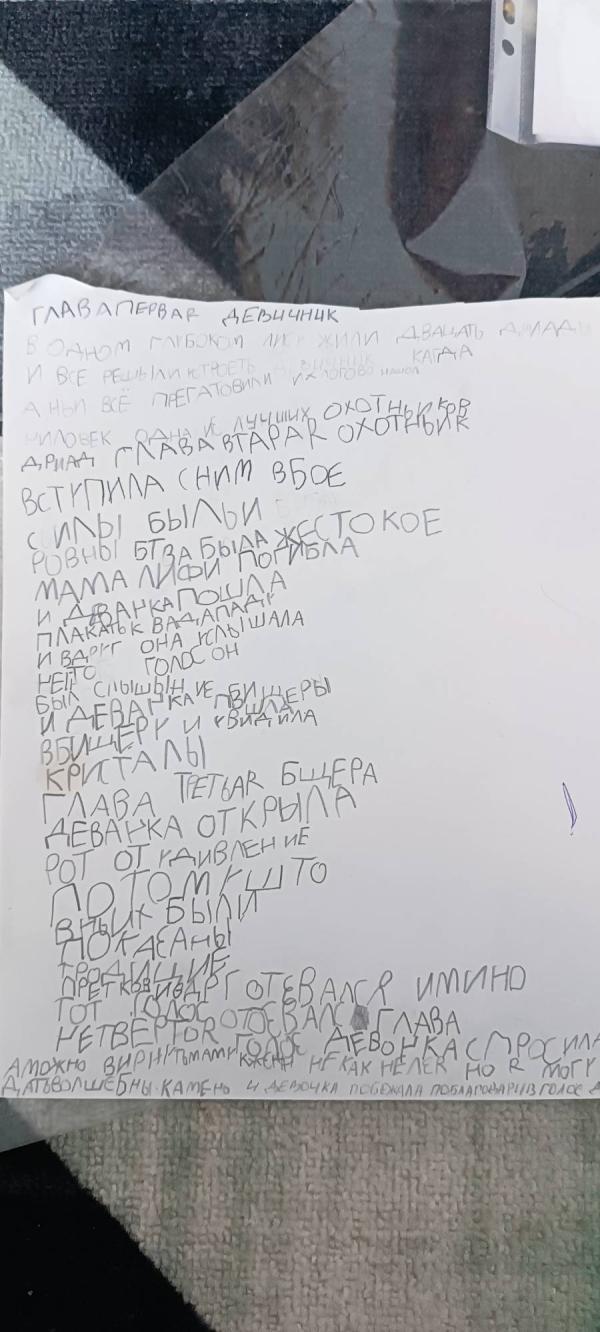 ГЛАВА ПЕРВАЯ ДЕВИЧНИК
В ОДНОМ ГЛУБОКОМ ЖИЛИ ДВАЦАТЬ
И ВСЕ РЕШЫЛИ УСТРОЕТЬ КАГДА
А НЬИ ВСЁ ПРЕГАТОВИЛИ ИХ ЛОГОВО НАШОЛ
ЧИЛОВЕК ОДНА ИС ЛУЧШИХ ОХОТНЬИКОВ
ДРИАД ГЛАВА ВТАРАЯ ОХОТНЬИК
ВСТУПИЛА С НИМ ВБОЕ
СИЛЫ БЫЛЬИ
РОВНЫ БТВА БЫЛА ЖЕСТОКОЕ
МАМА ЛИФИ ПОГИБЛА
И ДЕВАЧКА ПОШЛА
ПЛАКАТЬ К ВАДАПАДУ
И ВДРУГ ОНА УСЛЫШАЛА
ГОЛОС ОН
БЫЛ СЛЫШЫН ИС ПВИЩЕРЫ
И ДЕВАЧКА ПВШЛА
ВБИЩЕРУ И УВИДИЛА
КРИТАЛЫ
ГЛАВА ТРЕТЬАЯ БЩЕРА
ДЕВАЧКА ОТКРЫЛА
РОТ ОТ УДИВЛЕНИЕ
ПОТОМУШТО
ВНЬИХ БЫЛИ
ПОКАЕАНЫ
ПРЕТКОВ ИВДРУГ ОТЕВАЛСЯ ИМИНО
ТОТ ГОЛОС
ЧЕТВЁРТОЯ ОТОЕВАЛС ГЛАВА
ГОЛОС ДЕВОЧКА СПРОСИЛА
АМОЖНО ВИРНУТЬ МАМУ НЕКАК НЕЛЕЯ НО Я МОГУ
ДАТЬ ВОЛШЕБНЫ КАМЕНЬ И ДЕВОЧКА ПОБЕЖАЛА ПОБЛАГОВАРИВ ГОЛОС